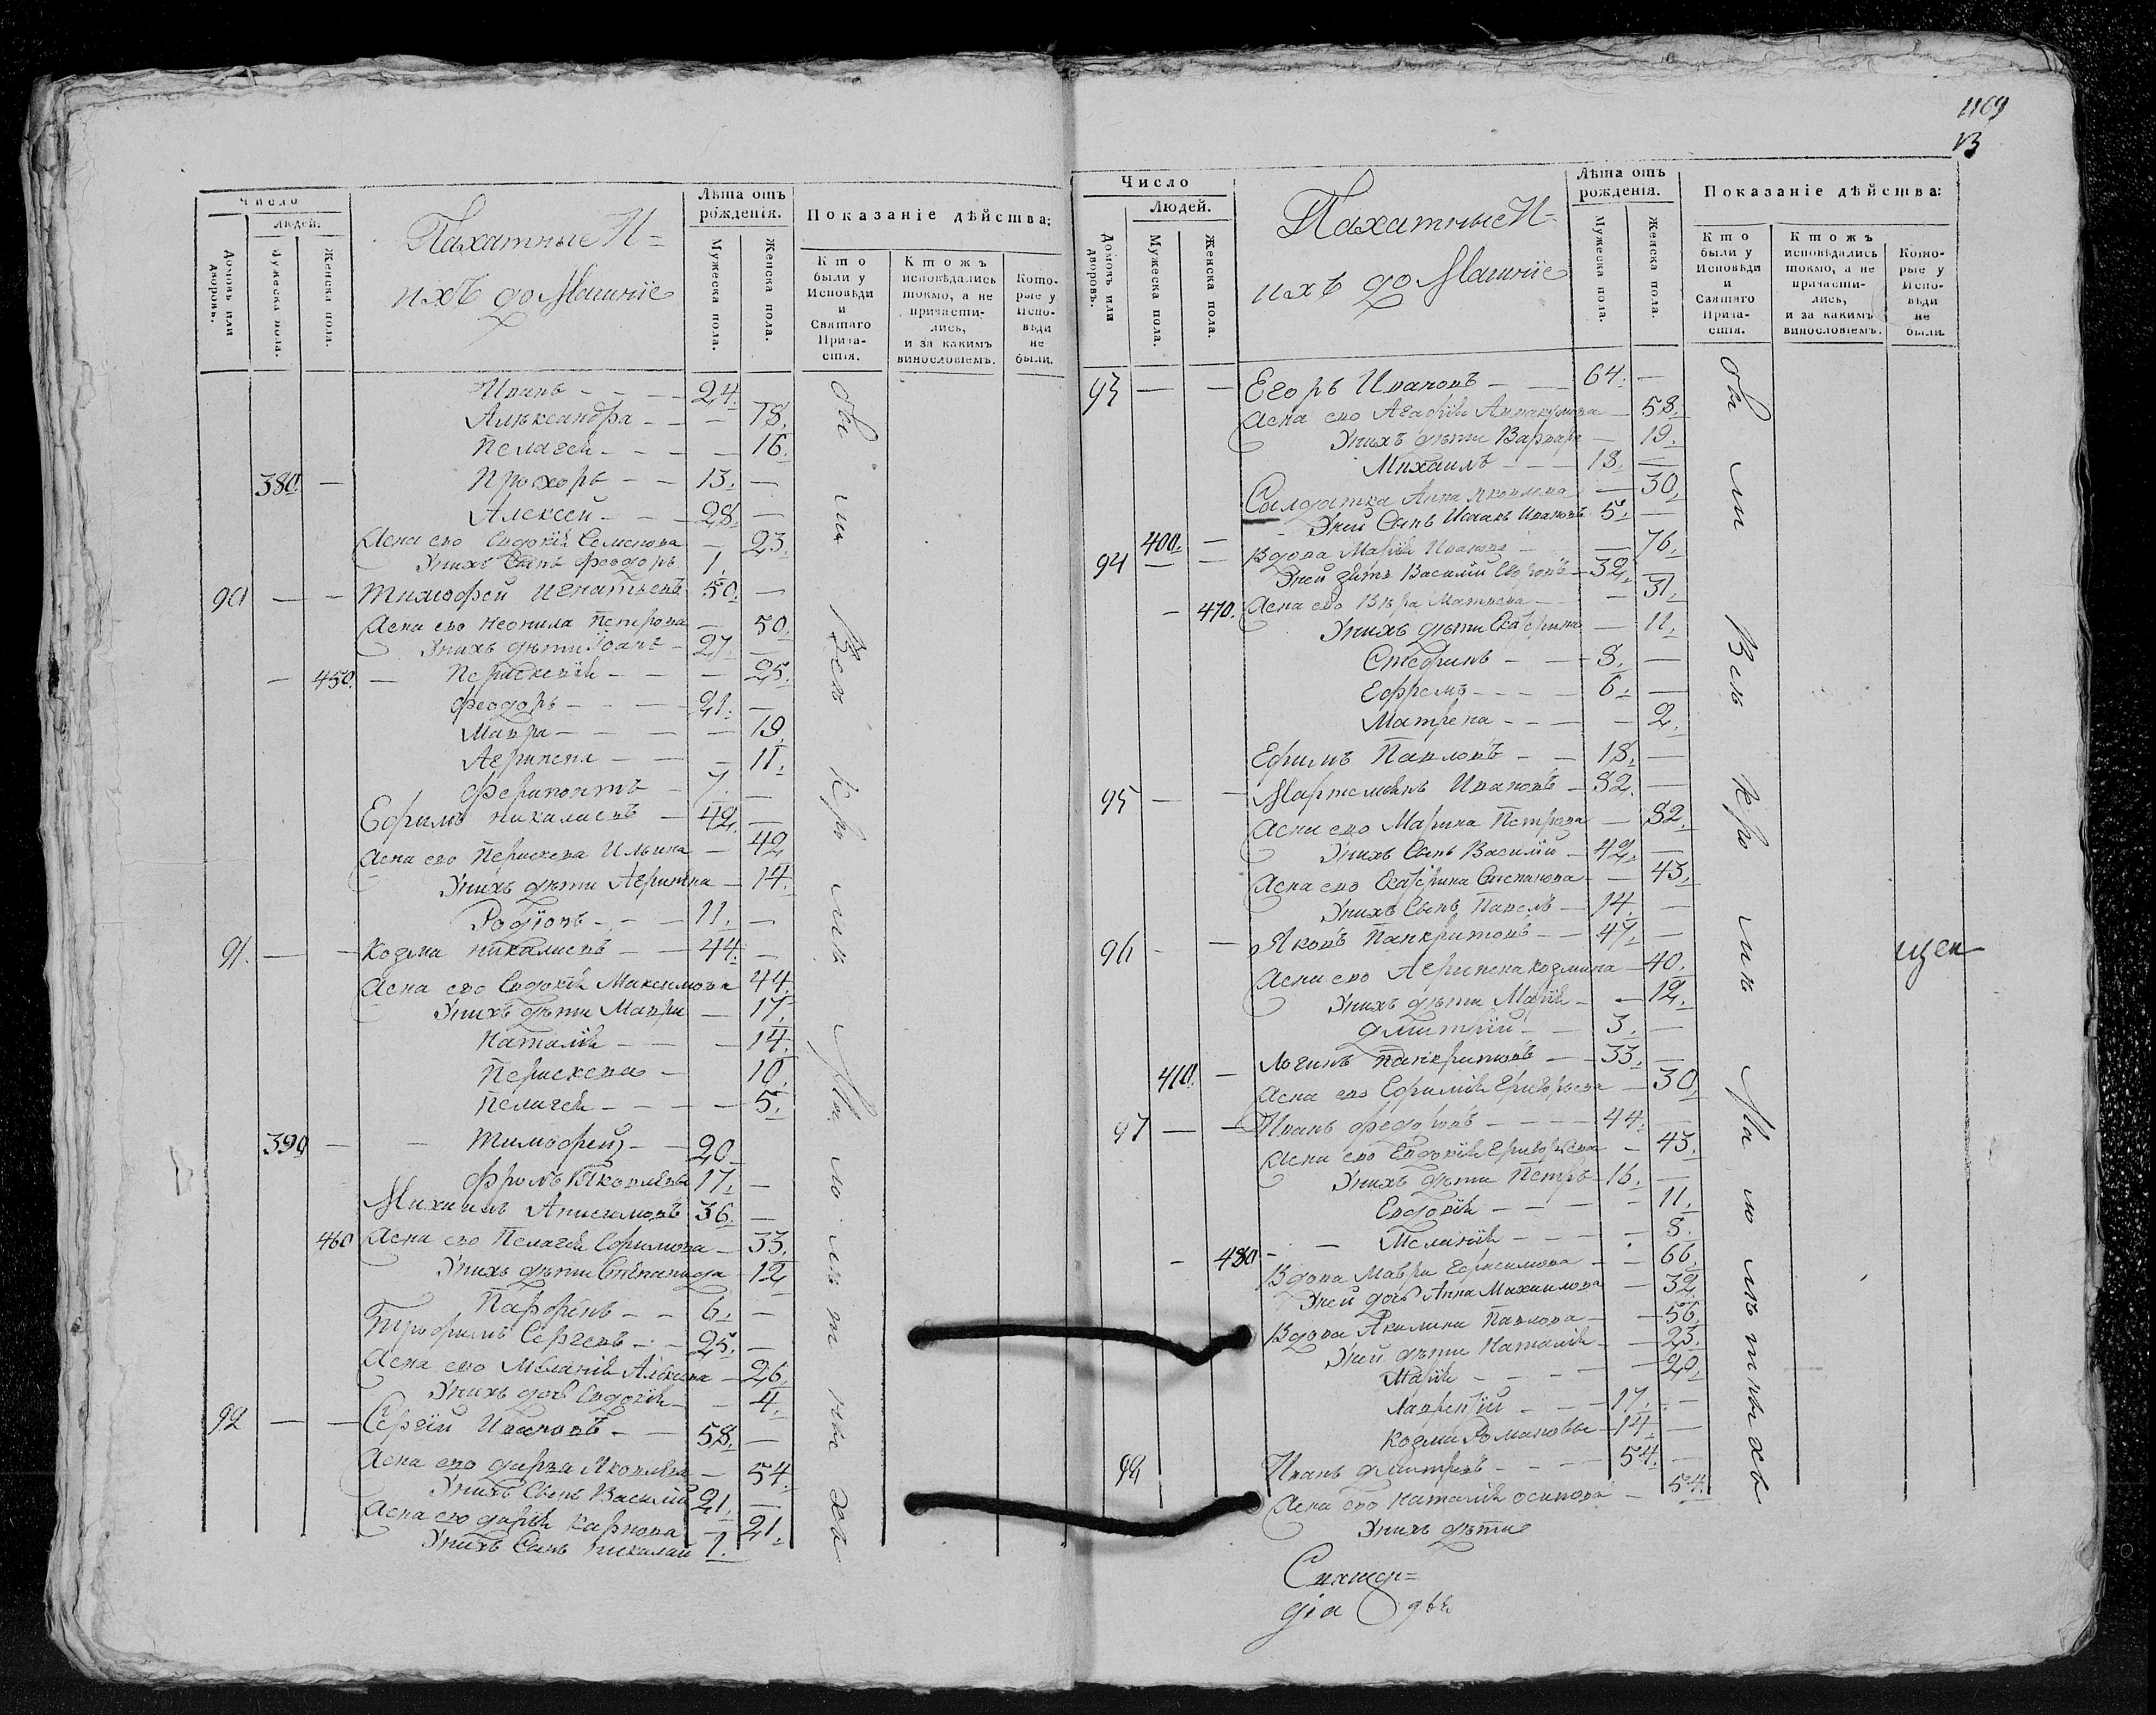 Число
Людей.
Домовъ или дворовъ.
Мужеска пола.
Женска пола.
Пахатные И=
ихъ домашніе
Лѣта отъ рожденія.
Мужеска пола.
Женска пола.
Показаніе дѣйства:
Кто были у Исповѣди и Святаго Прича-стія.
Ктожъ исповѣдались токмо, а не причасти-лись, и за какимъ винословіемъ.
Кото-рые у Испо-вѣди не были.
Иванъ - - - 24.
Александра - - - 18.
Пелагея - - - 16.
380. - Прохоръ - - 13. -
Алексей - - 28. -
Жена ево Евдокія Семенова - 23.
У нихъ сынъ Феодоръ 1.
90 - - Тимофей Игнатьевъ 50. -
Жена ево Неонила Петрова - 50.
У нихъ дѣти Іоанъ - 27. -
- 450. - Перасковія - - - 25.
Феодоръ - - - 21. -
Мавра - - - - 19.
Агрипена - - - 11.
Ферапонтъ - 7. -
Ефримъ Никалаевъ - 42. -
Жена ево Пераскева Ильина - 42
У нихъ дѣти Агрипѣна - 14.
Родіонъ - - - 11. -
91. - - Козма Никалаевъ - - 44. -
Жена ево Евдокія Максимова 44.
У нихъ дѣти Мавра - 17.
Наталія - - - 14.
Пераскева - 10.
Пелагея - - - - 5.
390 - - Тимофей - - 20 -
Фролъ Яковлевы 17. -
Михаилъ Анисимовъ 36. -
460 Жена ево Пелагея Ефимова - 33.
У нихъ дѣти Степанида - 12
Парфенъ - - 6. -
Трофимъ Сергеевъ - - 25. -
Жена ево Меланія Алексева - 26.
У нихъ дочь Евдокія - - 4.
92 - - Сергій Ивановъ - - 58. -
Жена ево Дарья Яковлева - 54.
У нихъ сынъ Василій 21. -
Жена ево Дарія Карпова - 21.
У нихъ сынъ Никалай 1.
Оныя Всѣ
1169
Число
Людей.
Домовъ или дворовъ.
Мужеска пола.
Женска пола.
Пахатные И=
ихъ домашніе
Лѣта отъ рожденія.
Мужеска пола.
Женска пола.
Показаніе дѣйства:
Кто были у Исповѣди и Святаго Прича-стія.
Ктожъ исповѣдались токмо, а не причасти-лись, и за какимъ винословіемъ.
Кото-рые у Испо-вѣди не были.
93 - - Егоръ Ивановъ - - 64. -
Жена ево Агафія Аввакумова - 58.
У нихъ дѣти Варвара - 19.
Михаилъ - - - 18. -
Салдатка Анна Яковлева - 30.
У ней сынъ Исаакъ Ивановъ 5. -
400. - Вдова Марія Иванова - - 76.
94 - - У ней зять Василій Егоровъ - 32. -
- 470. Жена ево Вера Матвева - - 31.
У нихъ дѣти Екатерина - 11.
Стефанъ - - - 8. -
Ефремъ - - - - 6. -
Матрена - - - - 2.
Ефимъ Павловъ - - 18. -
95 - - Мартемьянъ Ивановъ - 82. -
Жена ево Марина Петрова - 82.
У нихъ сынъ Василій - 42. -
Жена ево Екатерина Степанова - - 43.
У нихъ сынъ Павелъ - 14. -
96 - - Яковъ Панкратовъ - - 47. -
Жена ево Агрипена Козмина - 40.
У нихъ дѣти Марія - - 12.
Дмитрій - - 3. -
410. - Логинъ Панкратовъ - - 33. -
Жена ево Ефимія Григорьева - 30
97 - - Иванъ Федоровъ - - - - 44. -
Жена ево Евдокія Григорьева - 43.
У нихъ дѣти Петръ - 16. -
Евдокія - - - - 11.
- 480 - - Меланія - - - - 8.
Вдова Мавра Герасимова - - 66.
У ней дочь Анна Михаилова - 32.
Вдова Акилина Павлова - - 56.
У ней дѣти Наталія - - 23.
Марія - - - - 20
Лаврентій - - - 17. -
Козма Романовы - 14. -
Иванъ Дмитревъ - - - - 54. -
Жена ево Наталія Осипова - 54.
У нихъ дѣти
Всѣ